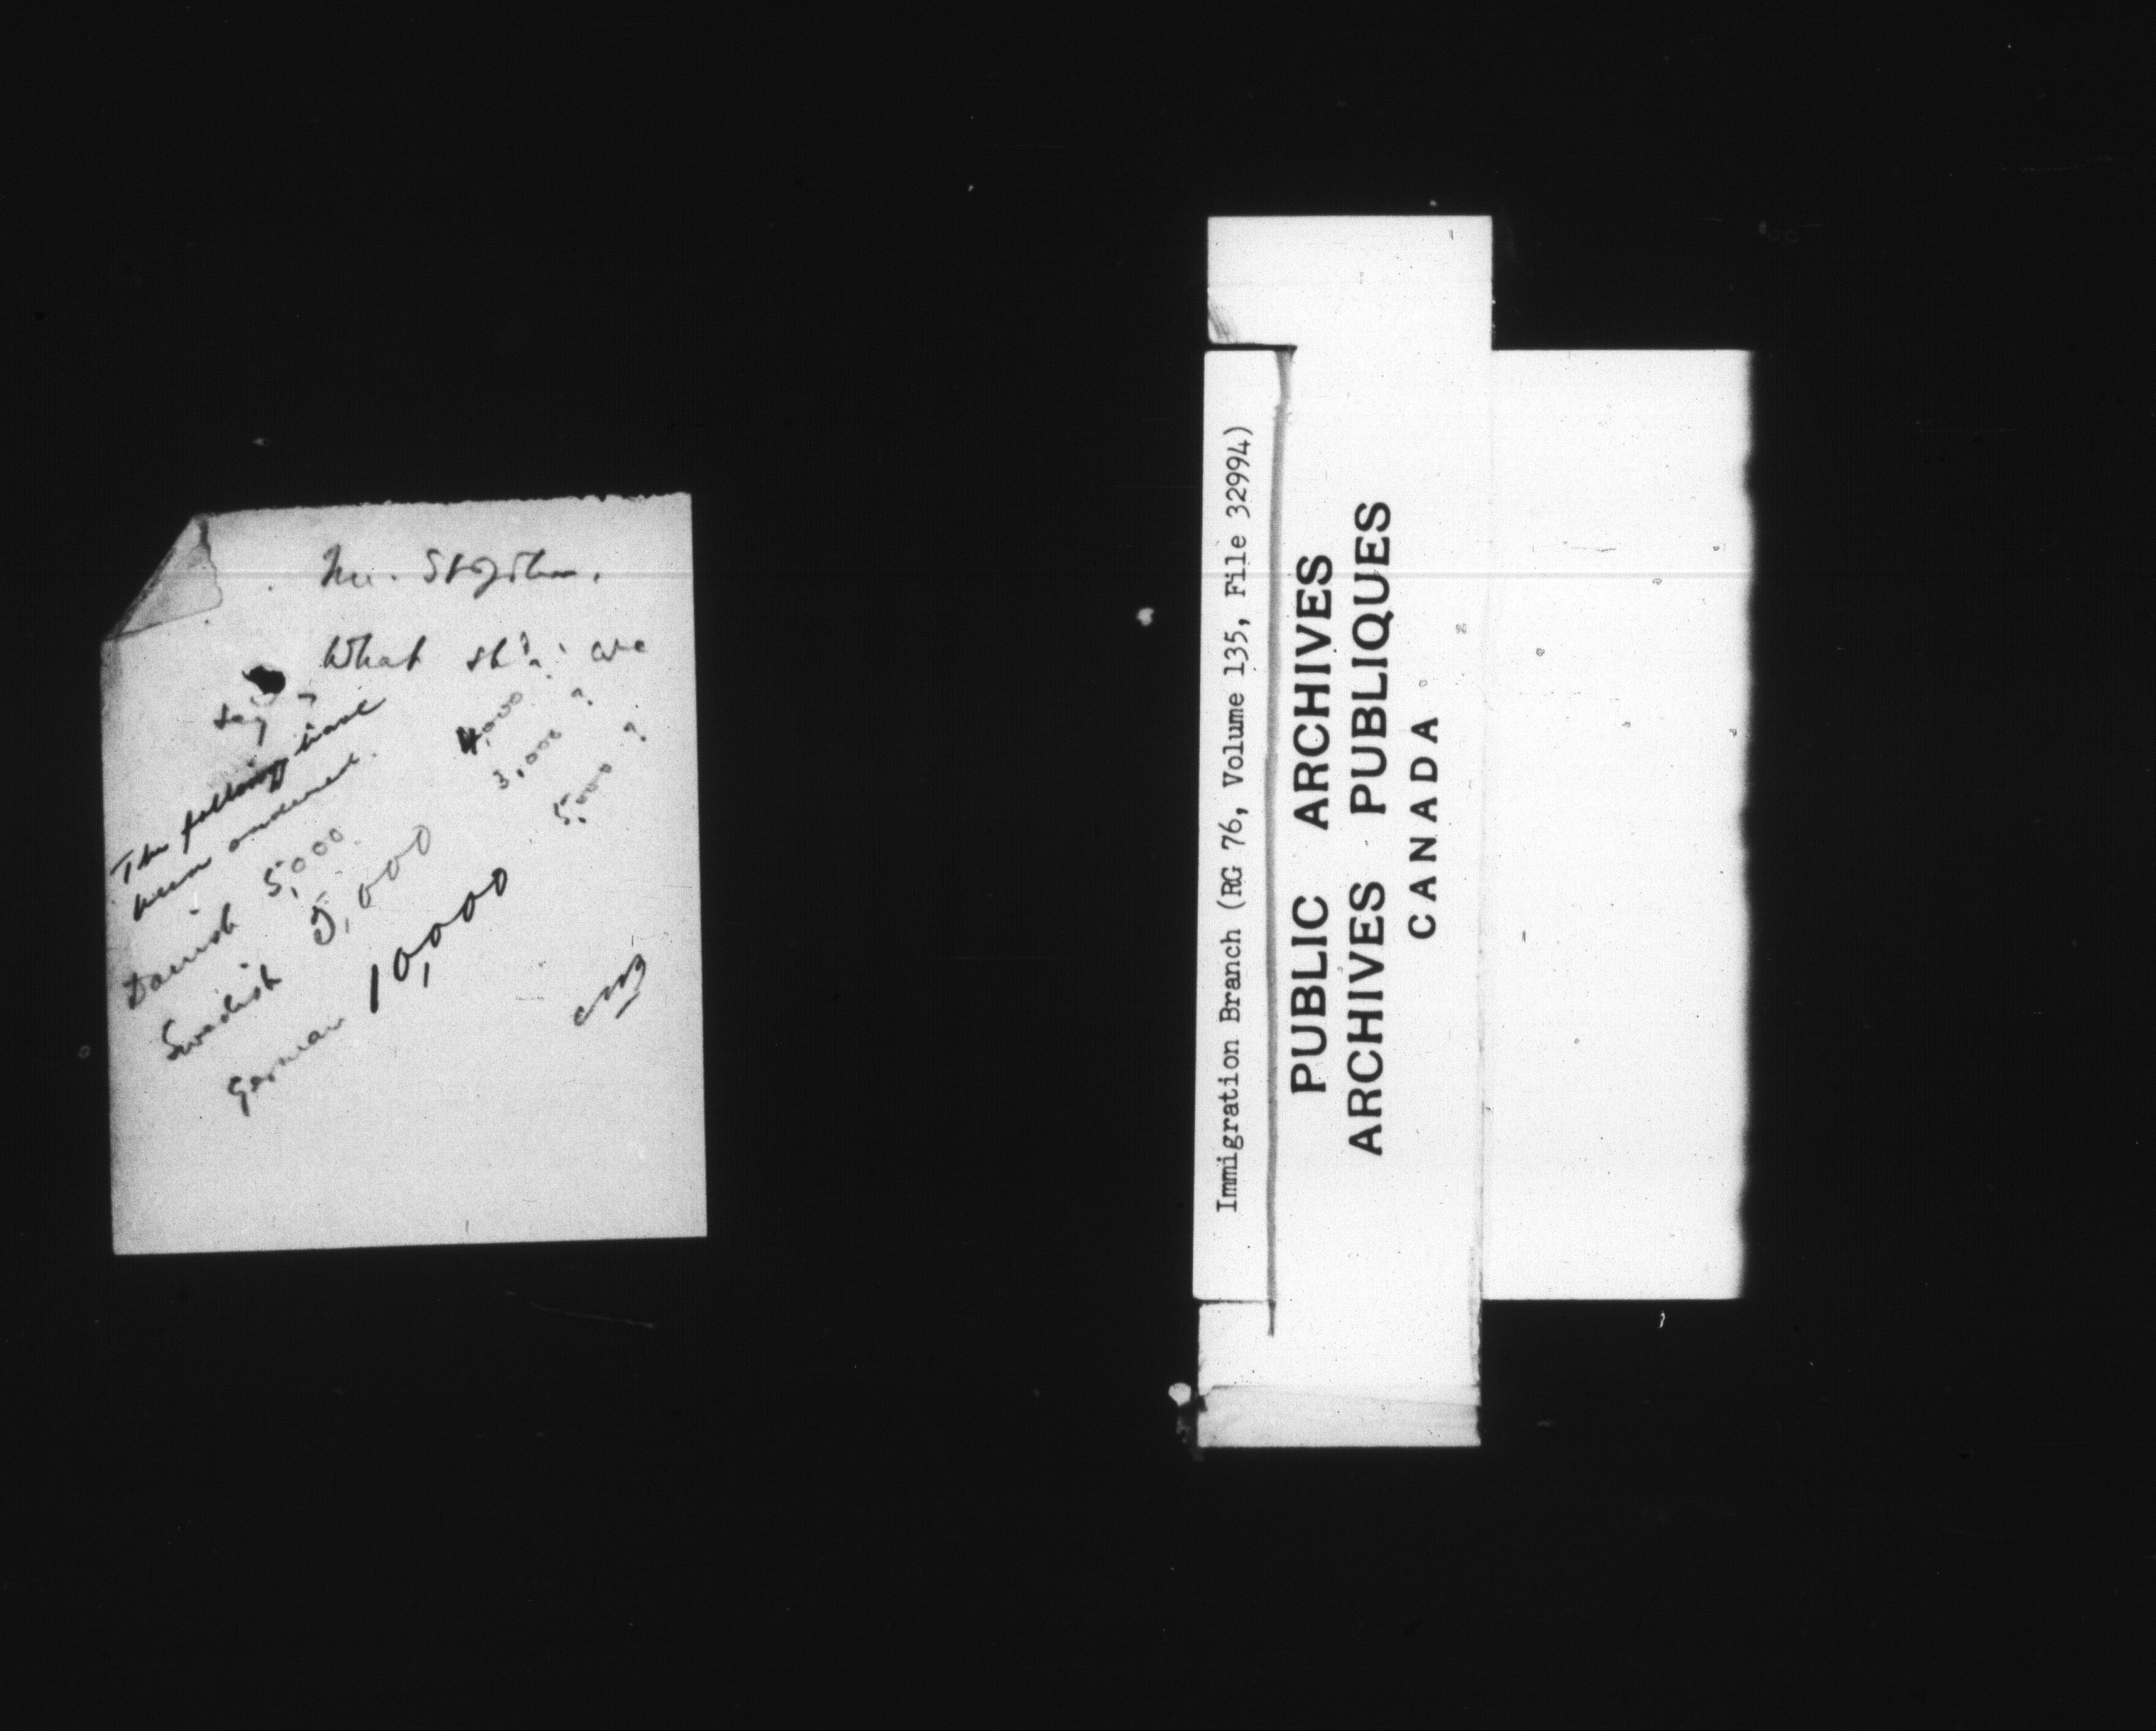 Mr.
What shd. we
say -
The following have
been ordered.
Danish 5,000 4,000 ?
Swedish 5,000 3,000 ?
German 10,000 5,000 ?
Immigration Branch (RG 76, Volume 135, File 32994)
PUBLIC ARCHIVES
ARCHIVES PUBLIQUES
CANADA